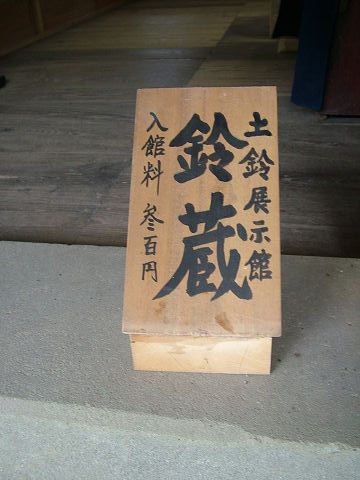 土鈴展示館
鈴蔵
入館料 参百円